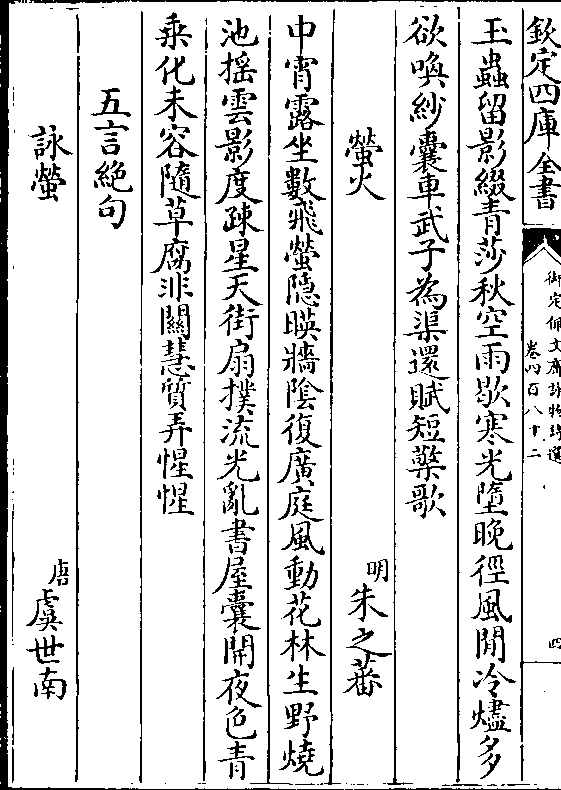 欽定四庫全書
御定佩文齋詠物詩選
卷四百八十二
四
玉蟲留影綴青莎秋空雨歇寒光墮晚徑風閒冷燼多
欲喚紗囊車武子為渠還賦短檠歌
螢火
明朱之蕃
中宵露坐數飛螢隠暎牆陰復廣庭風動花林生野燒
池摇雲影度疎星天街扇撲流光亂書屋囊開夜色青
乘化未容隨草腐非關慧質弄惺惺
五言絶句
詠螢
唐虞世南